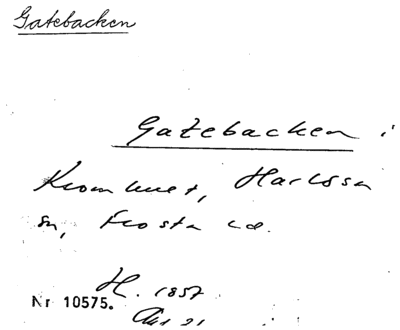 Gatebacken
Gatebacken i
Krommet, Harlösa
sn, Frosta hd.
H. 1857
Nr 10575.